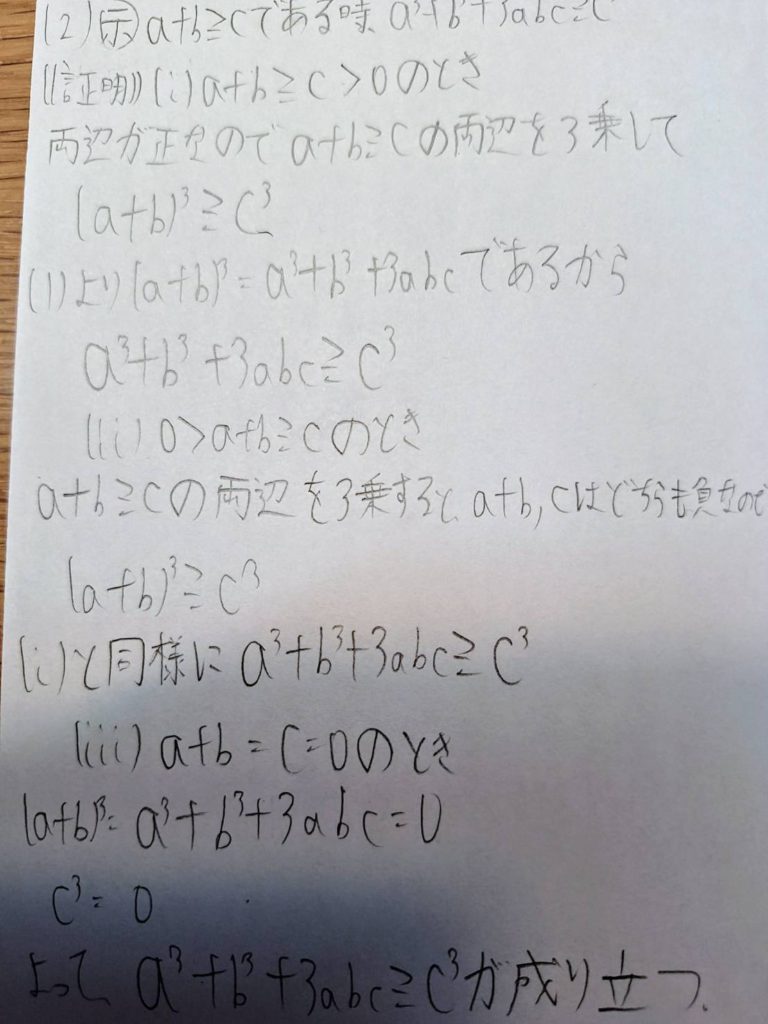 (2) 示 a+b≧cである時、a³+b³+3abc≧c³
《証明》(i) a+b≧c>0のとき
両辺が正なのでa+b≧cの両辺を3乗して
(a+b)³≧c³
(1)より(a+b)³=a³+b³+3abcであるから
a³+b³+3abc≧c³
(ii) 0>a+b≧cのとき
a+b≧cの両辺を3乗すると、a+b,cはどちらも負なので
(a+b)³≧c³
(i)と同様にa³+b³+3abc≧c³
(iii) a+b=c=0のとき
(a+b)³=a³+b³+3abc=0
c³=0
よって、a³+b³+3abc≧c³が成り立つ、